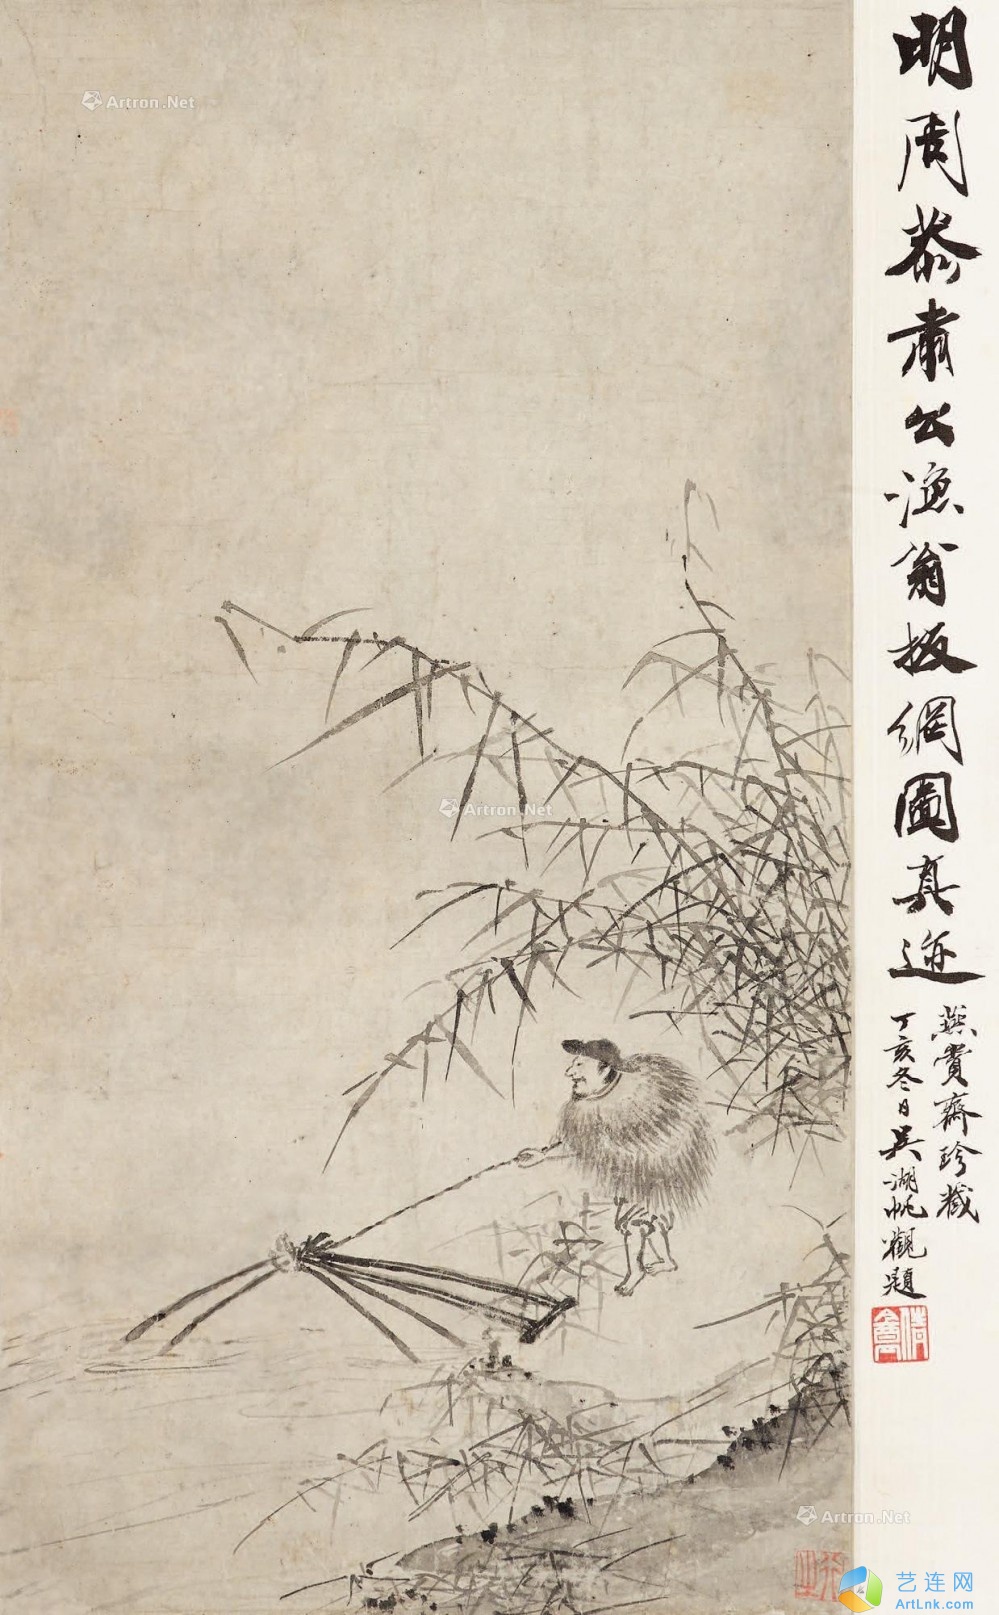 明周恭肅公漁翁扳網圖真迹
燕賞齋珍藏
丁亥冬日吳湖帆觀題
倩盦
Artron.Net
Artron.Net
Artron.Net
艺连网
ArtLnk.com